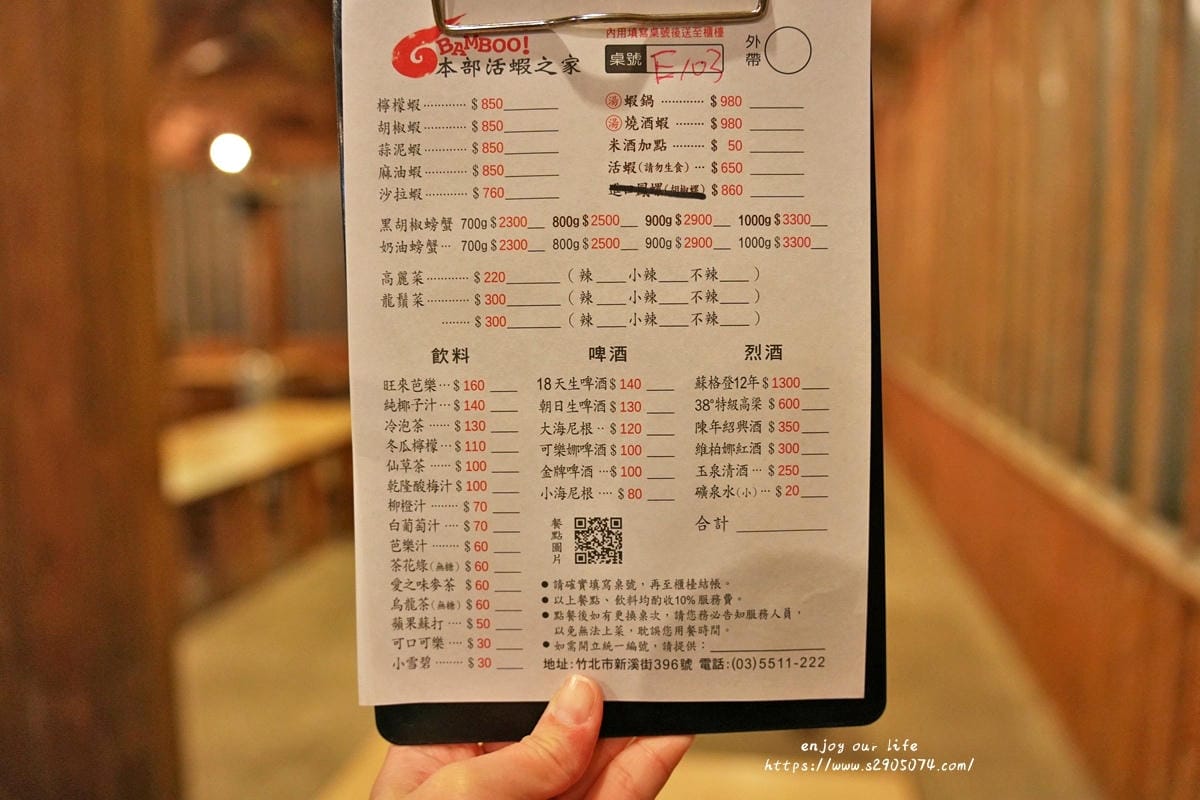 BAMBOO!
本部活蝦之家
內用填寫桌號後送至櫃檯
桌號 E103
外帶
檸檬蝦 ············ $ 850
胡椒蝦 ············ $ 850
蒜泥蝦 ············ $ 850
麻油蝦 ············ $ 850
沙拉蝦 ············ $ 760
湯 蝦鍋 ············ $ 980
湯 燒酒蝦 ········ $ 980
米酒加點 ········· $ 50
活蝦(請勿生食) ··· $ 650
進口鳳螺(胡椒螺) $ 860
黑胡椒螃蟹 700g $ 2300 800g $ 2500 900g $ 2900 1000g $ 3300
奶油螃蟹 ··· 700g $ 2300 800g $ 2500 900g $ 2900 1000g $ 3300
高麗菜 ············ $ 220 ( 辣____小辣____不辣____ )
龍鬚菜 ············ $ 300 ( 辣____小辣____不辣____ )
········ $ 300 ( 辣____小辣____不辣____ )
飲料
旺來芭樂 ··· $ 160
純椰子汁 ··· $ 140
冷泡茶 ······ $ 130
冬瓜檸檬 ··· $ 110
仙草茶 ······ $ 100
乾隆酸梅汁 $ 100
柳橙汁 ········ $ 70
白葡萄汁 ···· $ 70
芭樂汁 ········ $ 60
茶花綠(無糖) $ 60
愛之味麥茶 $ 60
烏龍茶(無糖) $ 60
蘋果蘇打 ···· $ 50
可口可樂 ···· $ 30
小雪碧 ········ $ 30
啤酒
18天生啤酒 $ 140
朝日生啤酒 $ 130
大海尼根 ·· $ 120
可樂娜啤酒 $ 100
金牌啤酒 ··· $ 100
小海尼根 ···· $ 80
烈酒
蘇格登12年 $ 1300
38°特級高梁 $ 600
陳年紹興酒 $ 350
維柏娜紅酒 $ 300
玉泉清酒 ··· $ 250
礦泉水(小) ··· $ 20
合計
餐點圖片
● 請確實填寫桌號，再至櫃檯結帳。
● 以上餐點、飲料均酌收10%服務費。
● 點餐後如有更換桌次，請您務必告知服務人員，
以免無法上菜，耽誤您用餐時間。
● 如需開立統一編號，請提供：
地址:竹北市新溪街396號 電話:(03)5511-222
enjoy our life
https://www.s2905074.com/